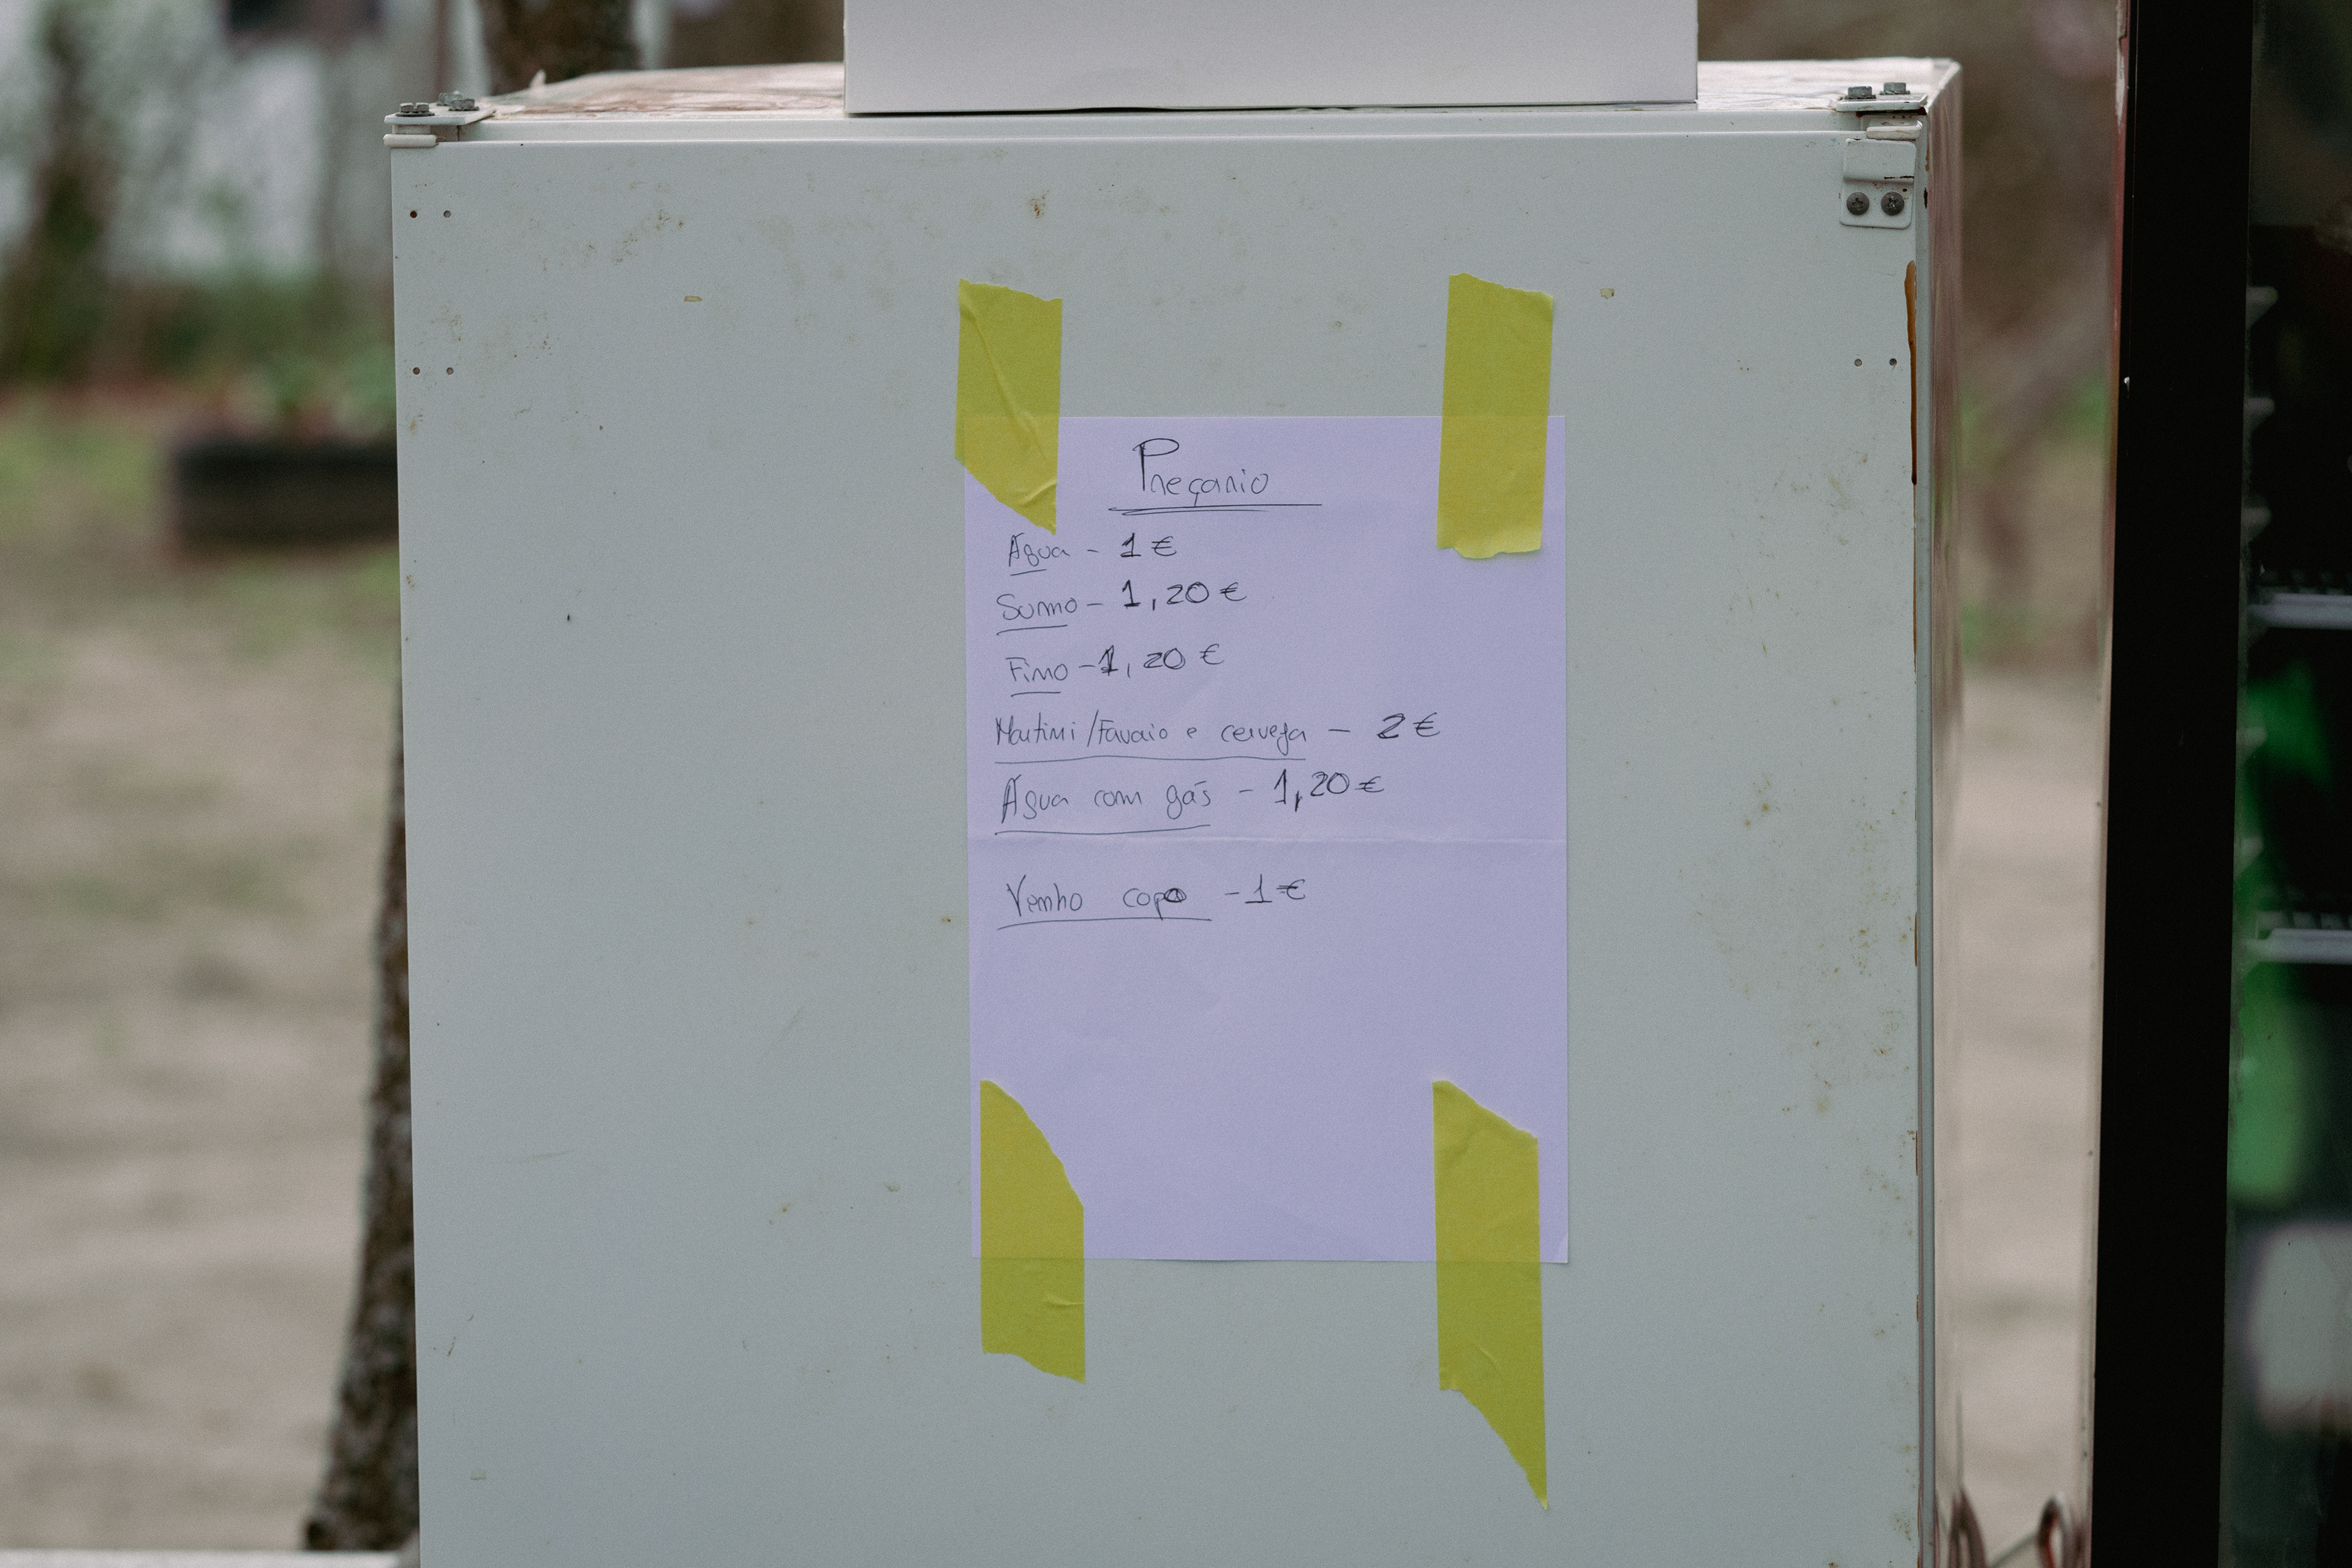 Preçario
Água - 1 €
Sumo - 1,20 €
Fino - 1,20 €
Martini/Favaio e cerveja - 2 €
Água com gás - 1,20 €
Venho copo - 1 €